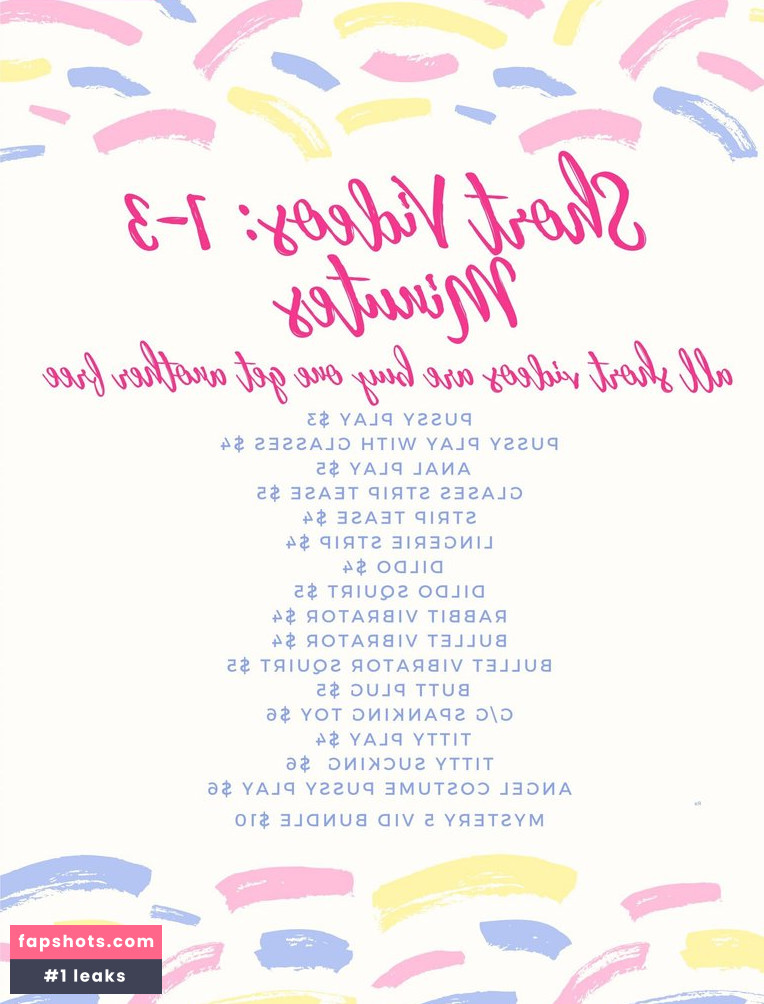 Short Videos: 1-3
Minutes
all short videos are buy one get another free
PUSSY PLAY $3
PUSSY PLAY WITH GLASSES $4
ANAL PLAY $5
GLASES STRIP TEASE $5
STRIP TEASE $4
LINGERIE STRIP $4
DILDO $4
DILDO SQUIRT $5
RABBIT VIBRATOR $4
BULLET VIBRATOR $4
BULLET VIBRATOR SQUIRT $5
BUTT PLUG $5
G/G SPANKING TOY $6
TITTY PLAY $4
TITTY SUCKING $6
ANGEL COSTUME PUSSY PLAY $6
MYSTERY 5 VID BUNDLE $10
fapshots.com
#1 leaks